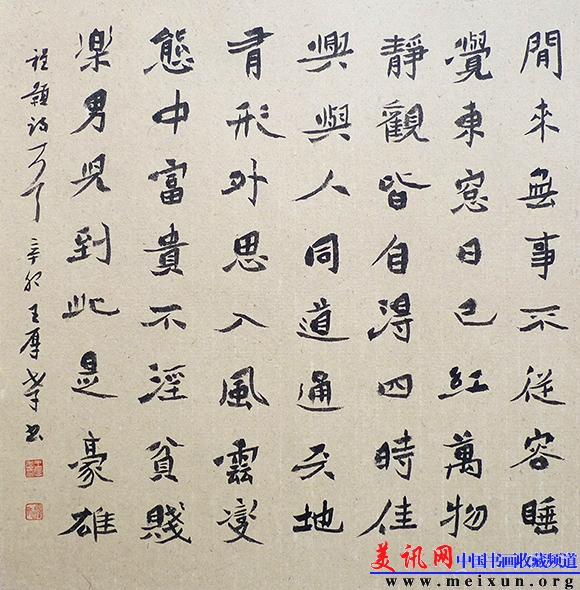 間來無事不從容睡
覺東窓日已紅萬物
靜觀皆自得四時佳
興與人同道通天地
有形外思入風雲變
態中富貴不淫貧賤
楽男児到此是豪雄
程顥詩 辛卯 王厚 書
美讯网 中国书画收藏频道
www.meixun.org